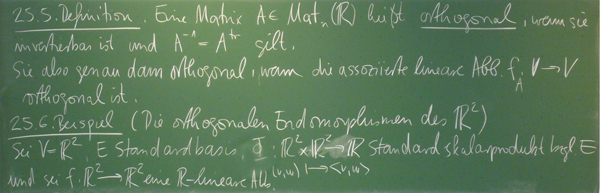 25.5. Definition. Eine Matrix A ∈ Mat_n(ℝ) heißt orthogonal, wenn sie
invertierbar ist und A^{-1} = A^{tr} gilt.
Sie also genau dann orthogonal, wenn die assoziierte lineare Abb. f_A: V → V
orthogonal ist.
25.6. Beispiel (Die orthogonalen Endomorphismen des ℝ²)
Sei V = ℝ², E Standardbasis, ℝ² × ℝ² → ℝ Standardskalarprodukt bzgl. E
(v,w) ↦ <v,w>
und sei f: ℝ² → ℝ² eine ℝ-lineare Abb.